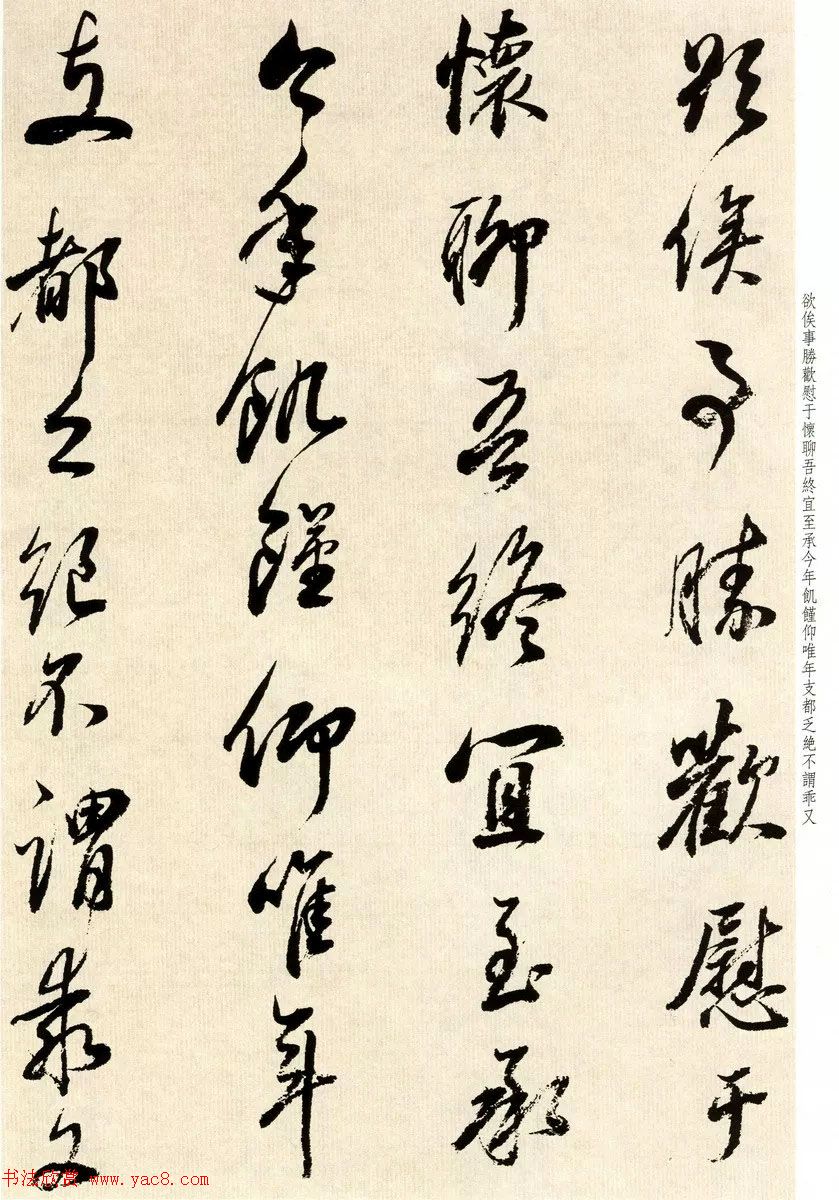 欲俟事勝歡慰于
懷聊吾終宜至承
今年飢饉仰唯年
支都乏絕不謂乖又
欲俟事勝歡慰于懷聊吾終宜至承今年飢饉仰唯年支都乏絶不謂乖又
书法欣赏 www.yac8.com